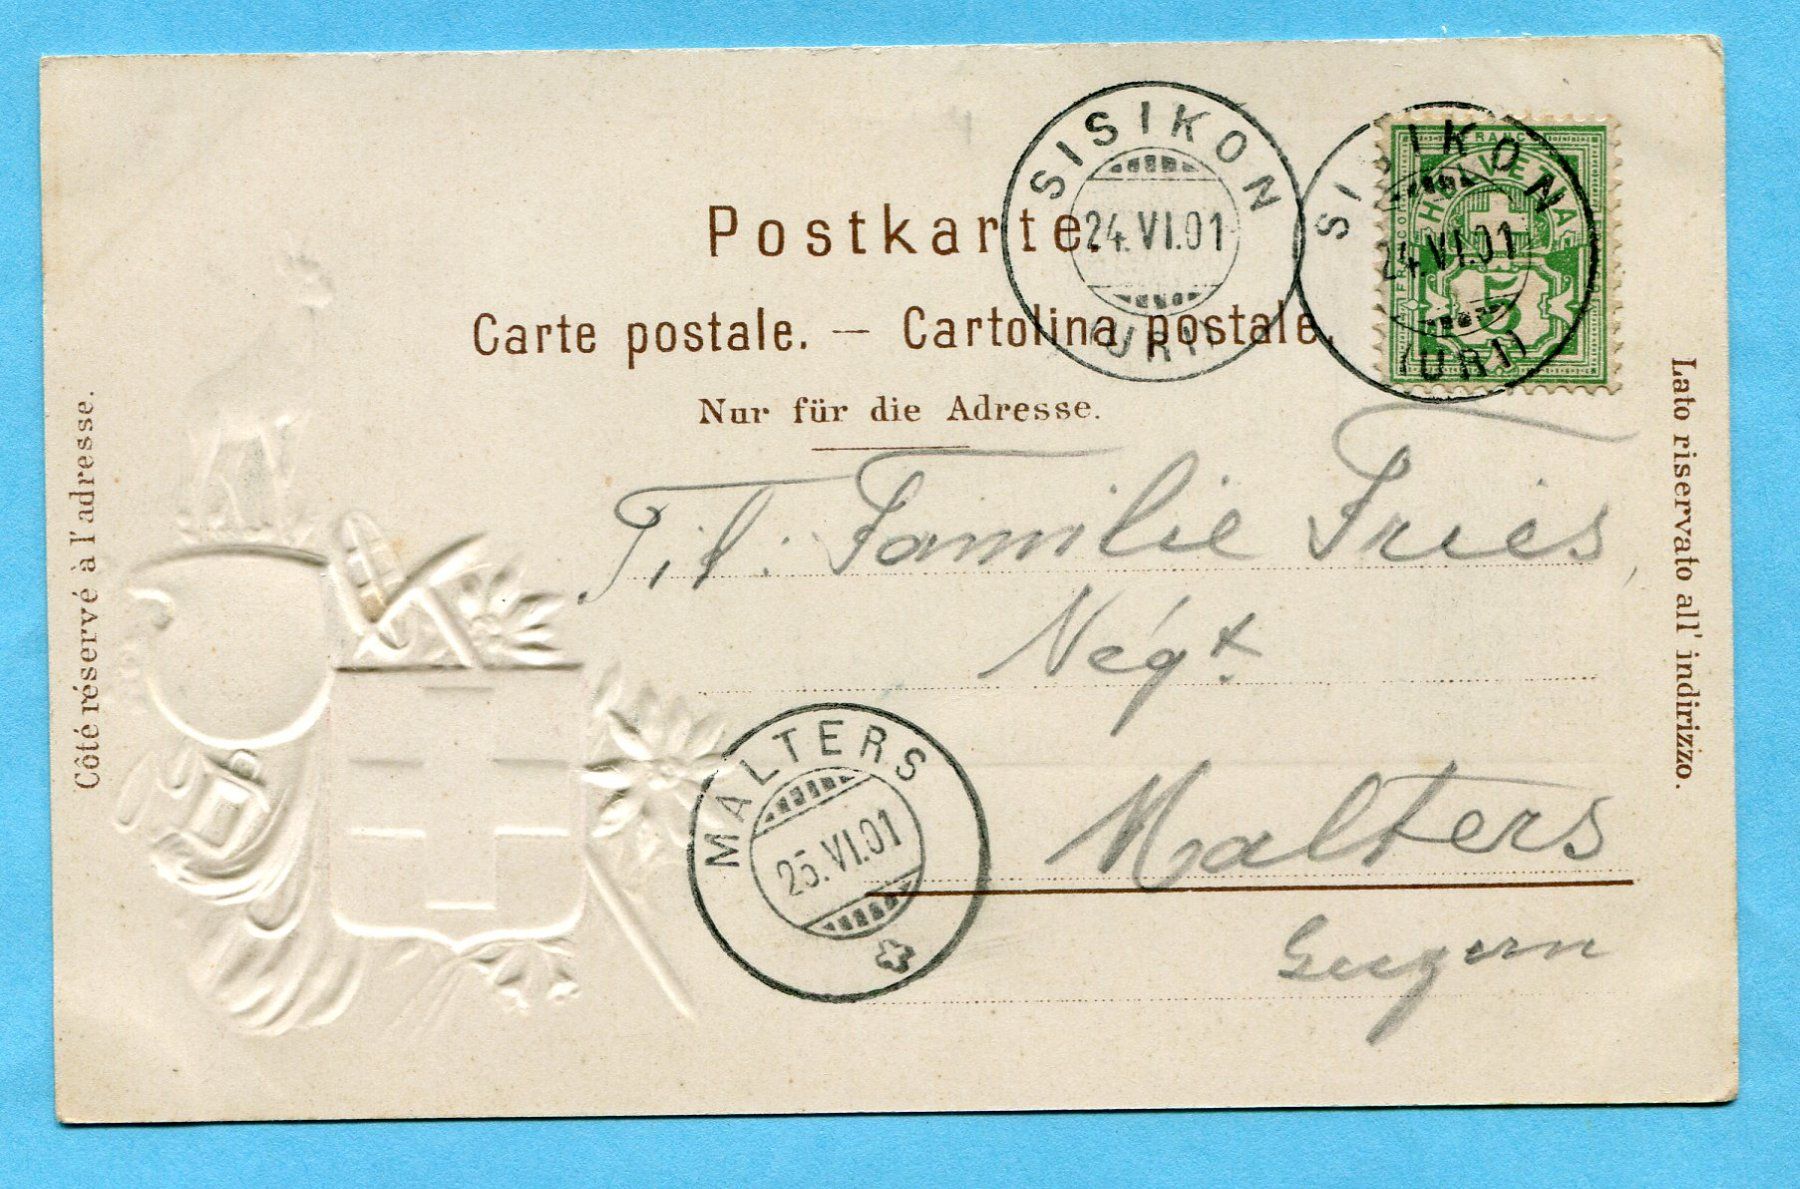 Postkarte.
Carte postale. — Cartolina postale.
Nur für die Adresse.
Côté réservé à l'adresse.
Lato riservato all' indirizzo.
SISIKON
24.VI.01
(URI)
SISIKON
24.VI.01
(URI)
FRANCO
HELVETIA
5
Tit. Familie Fries,
Négt.
Malters
Luzern
MALTERS
25.VI.01